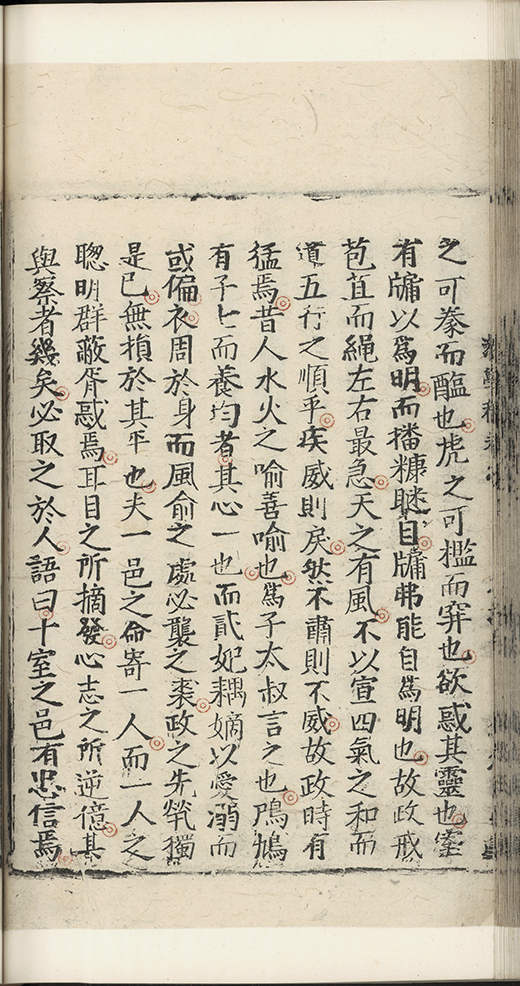 之可豢而醢也虎之可檻而穽也欲惑其靈也室
有牗以爲明而播糠眯目牗弗能自爲明也故政戒
苞苴而繩左右最急天之有風不以宣四氣之和而
道五行之順乎疾威則戾然不肅則不威故政時有
猛焉昔人水火之喻善喻也爲子太叔言之也鳲鳩
有子七而養均者其心一也而貳妃耦嫡以愛溺而
或偏衣周於身而風俞之處必襲之裘政之先煢獨
是已無損於其平也夫一邑之命寄一人而一人之
聰明群蔽胥惑焉耳目之所摘發心志之所逆億其
與察者幾矣必取之於人語曰十室之邑有忠信焉